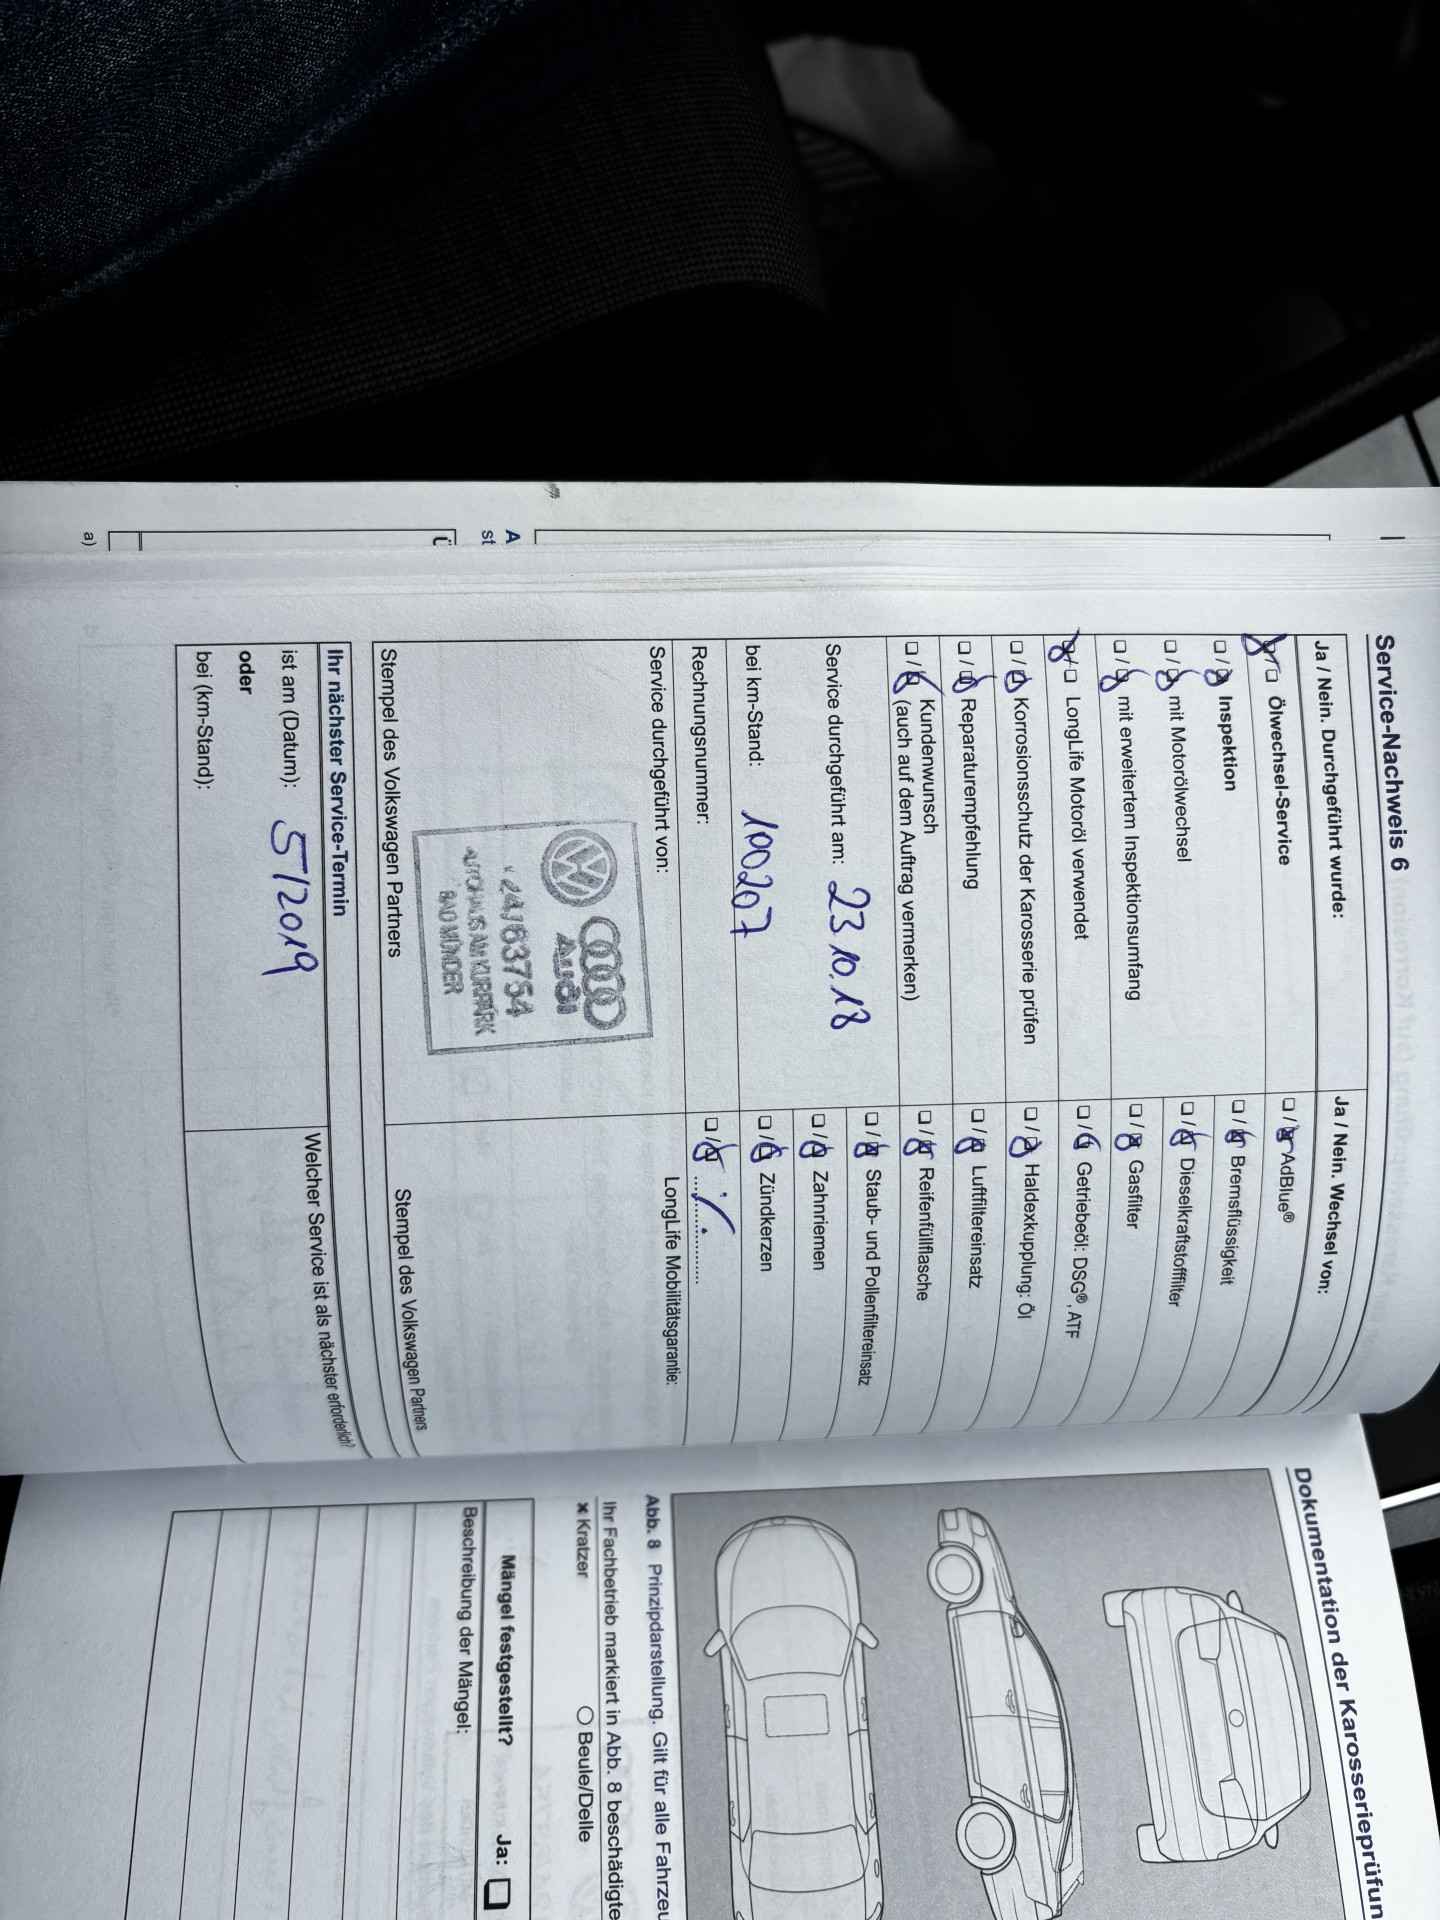 Service-Nachweis 6
Ja / Nein. Durchgeführt wurde:
Ja / Nein. Wechsel von:
Ölwechsel-Service
AdBlue®
Inspektion
Bremsflüssigkeit
mit Motorölwechsel
Dieselkraftstofffilter
mit erweitertem Inspektionsumfang
Gasfilter
LongLife Motoröl verwendet
Getriebeöl: DSG®, ATF
Korrosionsschutz der Karosserie prüfen
Haldexkupplung: Öl
Reparaturempfehlung
Luftfiltereinsatz
Kundenwunsch
(auch auf dem Auftrag vermerken)
Reifenfüllflasche
Service durchgeführt am: 23.10.18
Staub- und Pollenfiltereinsatz
Zahnriemen
bei km-Stand: 100207
Zündkerzen
Rechnungsnummer:
Service durchgeführt von:
LongLife Mobilitätsgarantie:
Audi
24/63754
AUTOHAUS AM KURPARK
BAD MÜNDER
Stempel des Volkswagen Partners
Stempel des Volkswagen Partners
Ihr nächster Service-Termin
Welcher Service ist als nächster erforderlich?
ist am (Datum): 5/2019
oder
bei (km-Stand):
A
st
Ü
a)
Dokumentation der Karosserieprüfun
Abb. 8 Prinzipdarstellung. Gilt für alle Fahrzeu
Ihr Fachbetrieb markiert in Abb. 8 beschädigte
× Kratzer
○ Beule/Delle
Mängel festgestellt? Ja:
Beschreibung der Mängel: